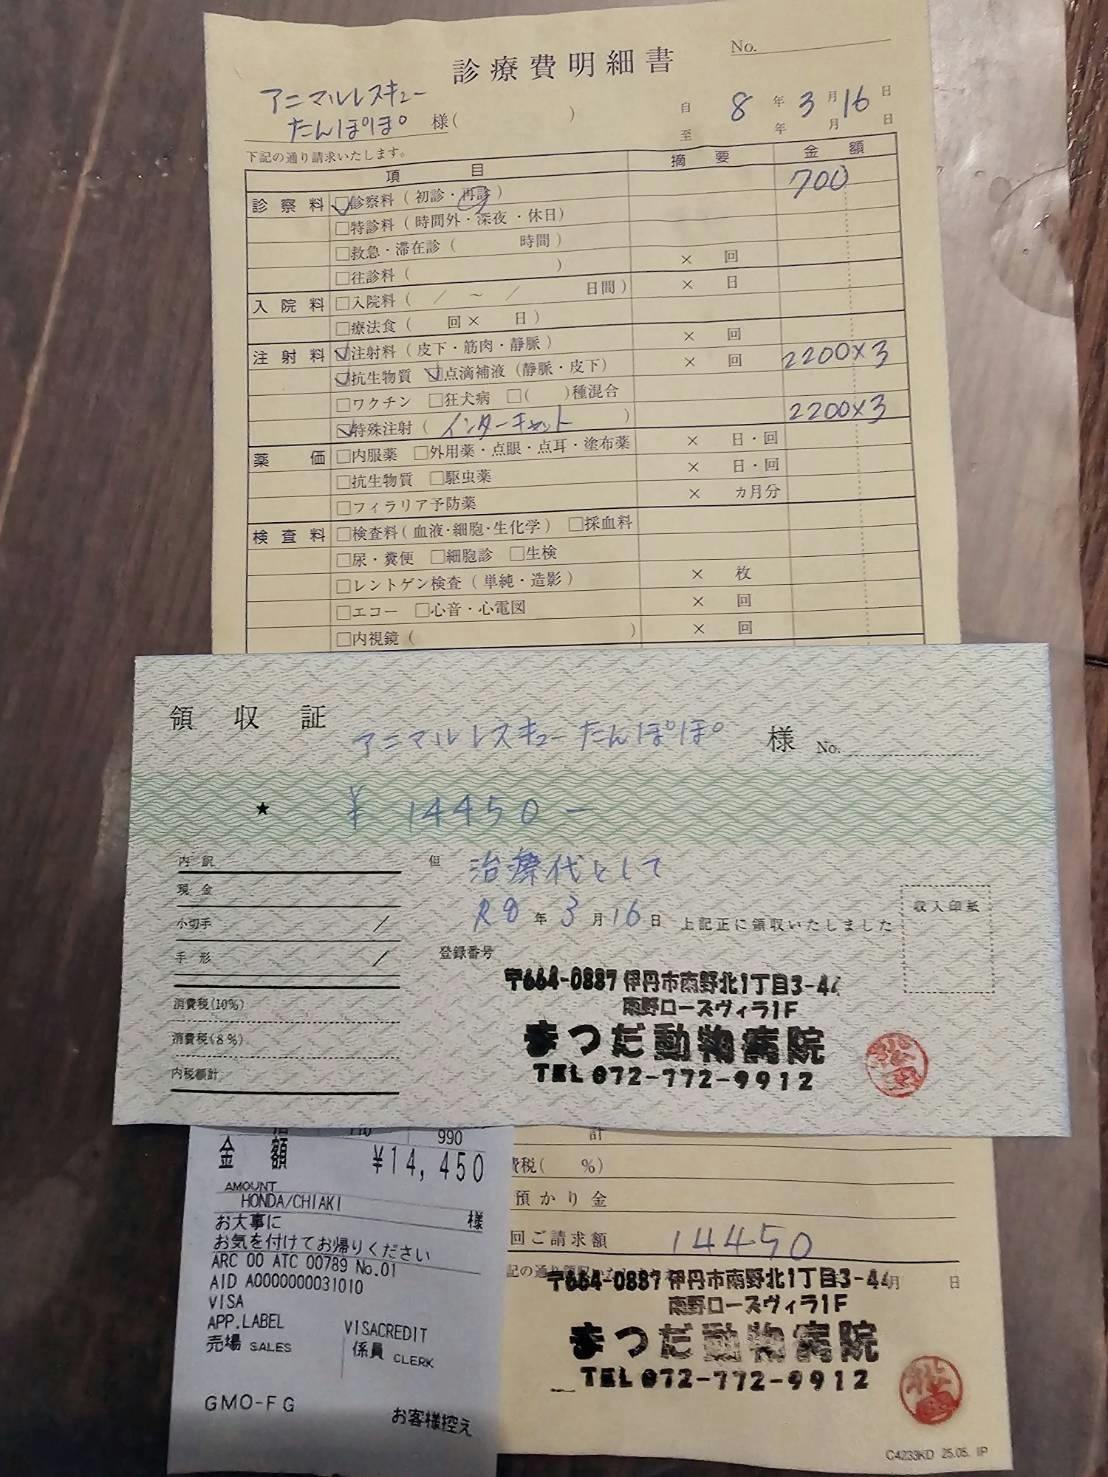 診療費明細書
No.
アニマルレスキュー
たんぽぽ 様( )
自 8 年 3 月 16 日
至 年 月 日
下記の通り請求いたします。
項 目 摘 要 金 額
診察料 □診察料 ( 初診・再診 ) 700
□特診料 ( 時間外・深夜・休日 )
□救急・滞在診 ( 時間 )
□往診料 ( ) × 回
入院料 □入院料 ( / ～ / 日間 ) × 日
□療法食 ( 回 × 日 )
注射料 □注射料 ( 皮下・筋肉・静脈 ) × 回
□抗生物質 □点滴補液 (静脈・皮下) × 回 2200×3
□ワクチン □狂犬病 □( )種混合
□特殊注射 ( インターキャット ) 2200×3
薬価 □内服薬 □外用薬・点眼・点耳・塗布薬 × 日・回
□抗生物質 □駆虫薬 × 日・回
□フィラリア予防薬 × カ月分
検査料 □検査料 ( 血液・細胞・生化学 ) □採血料
□尿・糞便 □細胞診 □生検
□レントゲン検査 ( 単純・造影 ) × 枚
□エコー □心音・心電図 × 回
□内視鏡 ( ) × 回
領収証 アニマルレスキューたんぽぽ 様 No.
★ ¥ 14450 −
内訳
但 治療代として
現金
R8 年 3 月 16 日 上記正に領収いたしました
収入印紙
小切手 /
手形 /
登録番号
消費税(10%)
消費税(8%)
内税額計
〒664-0887 伊丹市南野北1丁目3-44
南野ローズヴィラ1F
まつだ動物病院
TEL 072-772-9912
990
金額 ¥14,450
AMOUNT
HONDA/CHIAKI 様
お大事に
お気を付けてお帰りください
ARC 00 ATC 00789 No.01
AID A0000000031010
VISA
APP.LABEL VISACREDIT
売場 SALES 係員 CLERK
GMO-FG
お客様控え
計
費税( %)
預かり金
回ご請求額 14450
月 日
〒664-0887 伊丹市南野北1丁目3-44
南野ローズヴィラ1F
まつだ動物病院
TEL 072-772-9912
C4233KD 25.05. IP